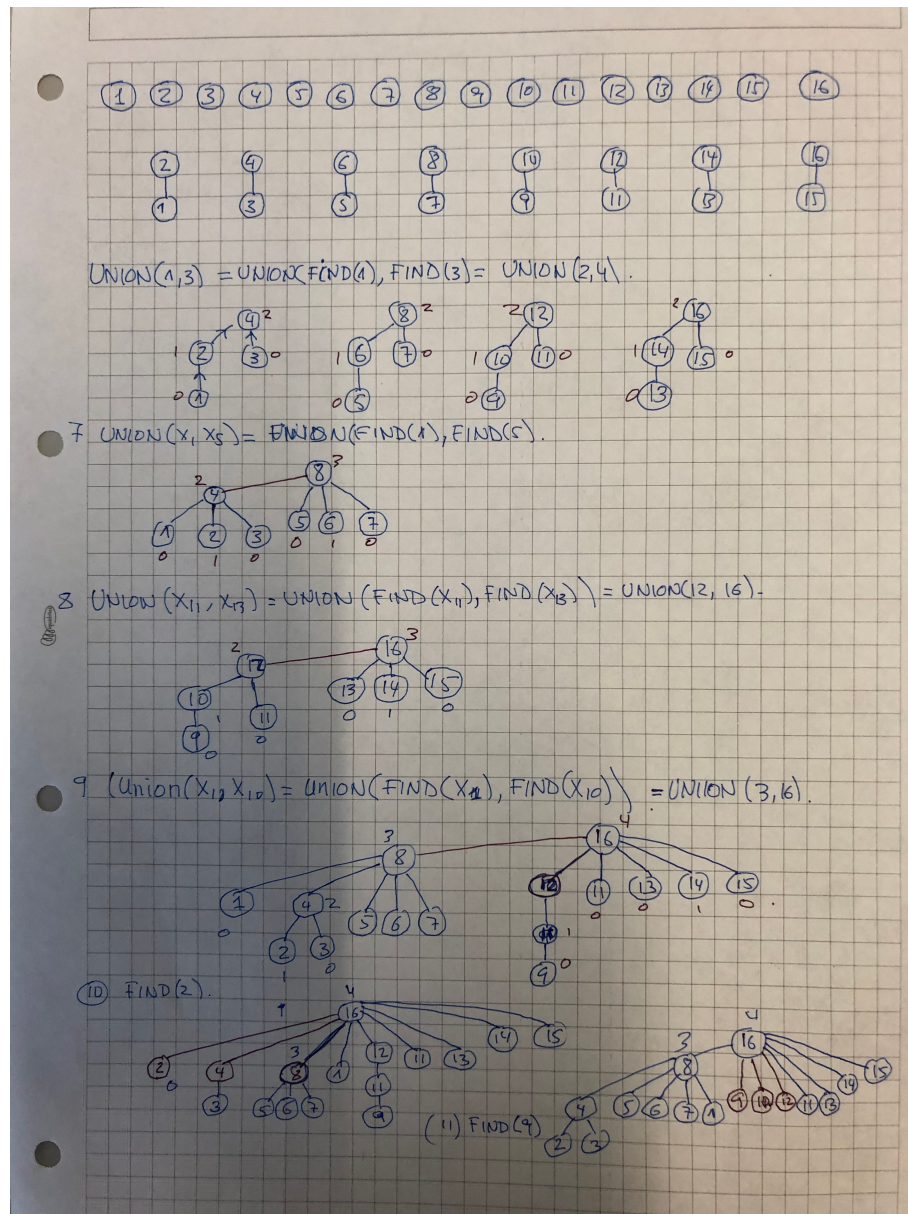 1 2 3 4 5 6 7 8 9 10 11 12 13 14 15 16
2 4 6 8 10 12 14 16
1 3 5 7 9 11 13 15
UNION(1,3) = UNION(FIND(1), FIND(3) = UNION(2,4).
4 2 8 2 2 12 2 16
1 2 3 0 1 6 7 0 1 10 11 0 1 14 15 0
0 1 0 5 0 9 0 13
7 UNION(X, X5) = UNION(FIND(1), FIND(5).
2 4 8 3
1 2 3 5 6 7
0 1 0 0 1 0
8 UNION(X11, X13) = UNION(FIND(X11), FIND(X13)) = UNION(12, 16).
2 12 16 3
10 1 11 13 14 15
9 0 0 0 1 0
9 (Union(X1, X10) = Union(FIND(X1), FIND(X10)) = UNION(3,16).
3 8 4 16
1 4 2 5 6 7 12 11 13 14 15
0 2 3 0 0 1 0
1 0 1
9 0
10 FIND(2).
4 16
2 4 3 8 1 12 11 13 14 15
0 3 5 6 7 11
9
(11) FIND(9)
4 16
3 8 9 10 12 11 13 14 15
4 5 6 7 1
2 3